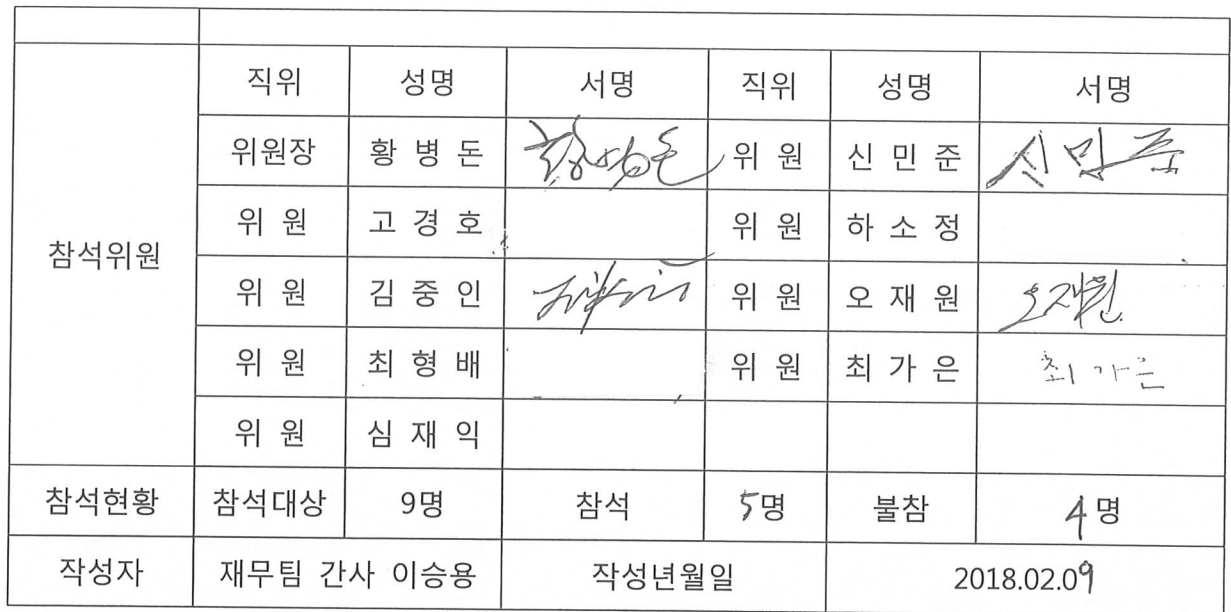 직위 성명 서명 직위 성명 서명
위원장 황 병 돈 황병돈 위 원 신 민 준 신민준
위 원 고 경 호 위 원 하 소 정
참석위원
위 원 김 중 인 위 원 오 재 원 오재원
위 원 최 형 배 위 원 최 가 은 최가은
위 원 심 재 익
참석현황 참석대상 9명 참석 5명 불참 4명
작성자 재무팀 간사 이승용 작성년월일 2018.02.09